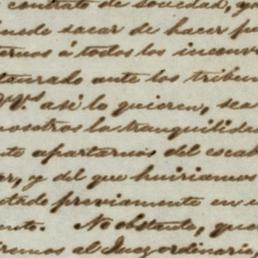 contrato de sociedad, qu
uede sacar de hacer pu
ernos á todos los inconv
laurado ante los tribun
VV.ˢ así lo quieren, sea
nosotros la tranquilidad
te apartarnos del escab
or, y del que huiriamos
previamente en e
ento. No obstante, que
iremos al Juez ordinario,